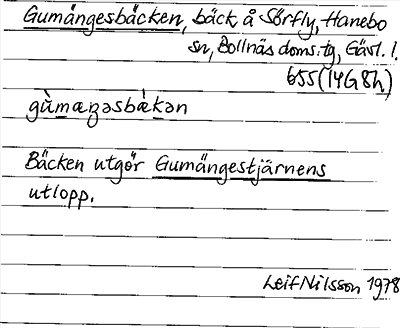 Gumängesbäcken, bäck, å Sörfly, Hanebo
sn, Bollnäs doms:tg, Gävl. l.
655(14G8h)
gùmæŋəsbàkən
Bäcken utgör Gumängestjärnens
utlopp.
Leif Nilsson 1978